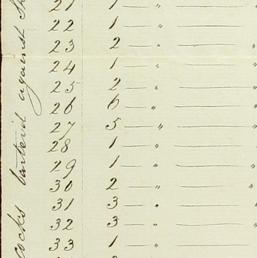 21 1 — " —
22 1 — " —
23 2 — " —
24 1 — " —
25 2 — " —
26 6 — " —
27 5 — " —
28 1 — " —
29 1 — " —
30 2 — " —
31 3 — " —
32 3 — " —
33 1 — " —
cocks
against